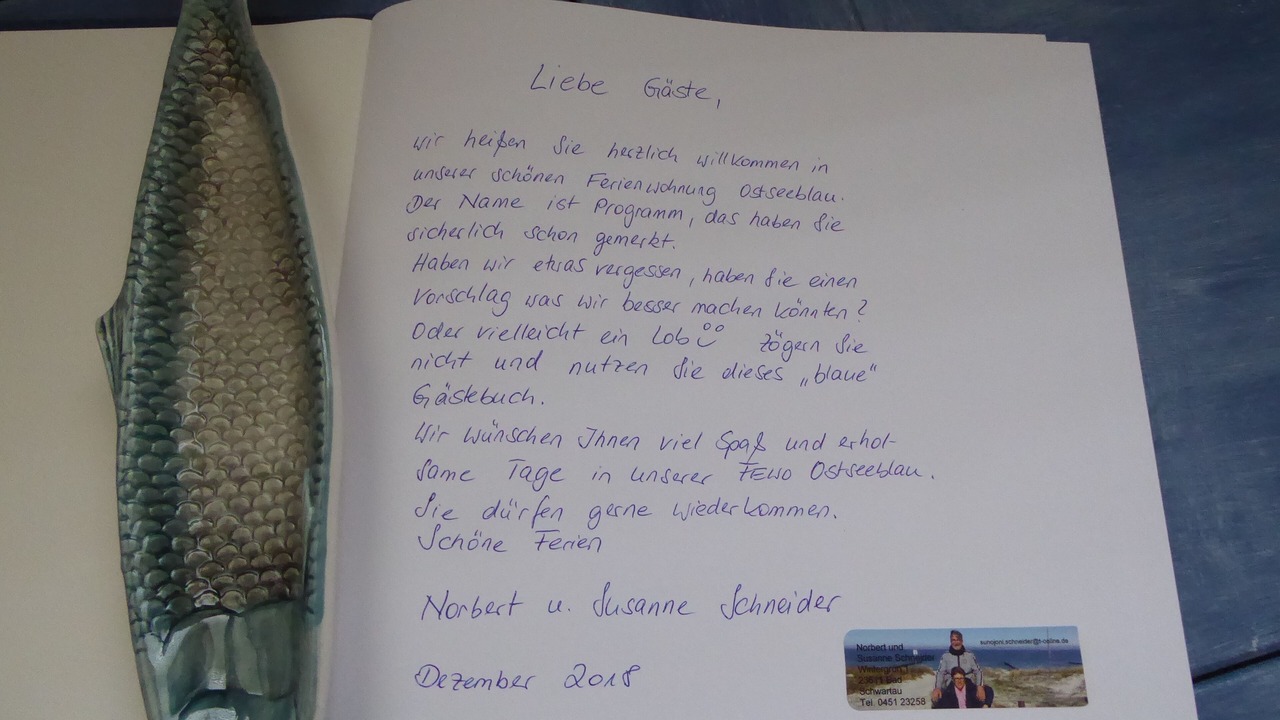 Liebe Gäste,
wir heißen Sie herzlich willkommen in
unserer schönen Ferienwohnung Ostseeblau.
Der Name ist Programm, das haben Sie
sicherlich schon gemerkt.
Haben wir etwas vergessen, haben Sie einen
Vorschlag was wir besser machen könnten?
Oder vielleicht ein Lob Zögern Sie
nicht und nutzen Sie dieses „blaue"
Gästebuch.
Wir wünschen Ihnen viel Spaß und erhol-
same Tage in unserer FEWO Ostseeblau.
Sie dürfen gerne wiederkommen.
Schöne Ferien
Norbert u. Susanne Schneider
Dezember 2018
sunojoni.schneider@t-online.de
Norbert und
Susanne Schneider
23611 Bad
Schwartau
Tel. 0451 23258